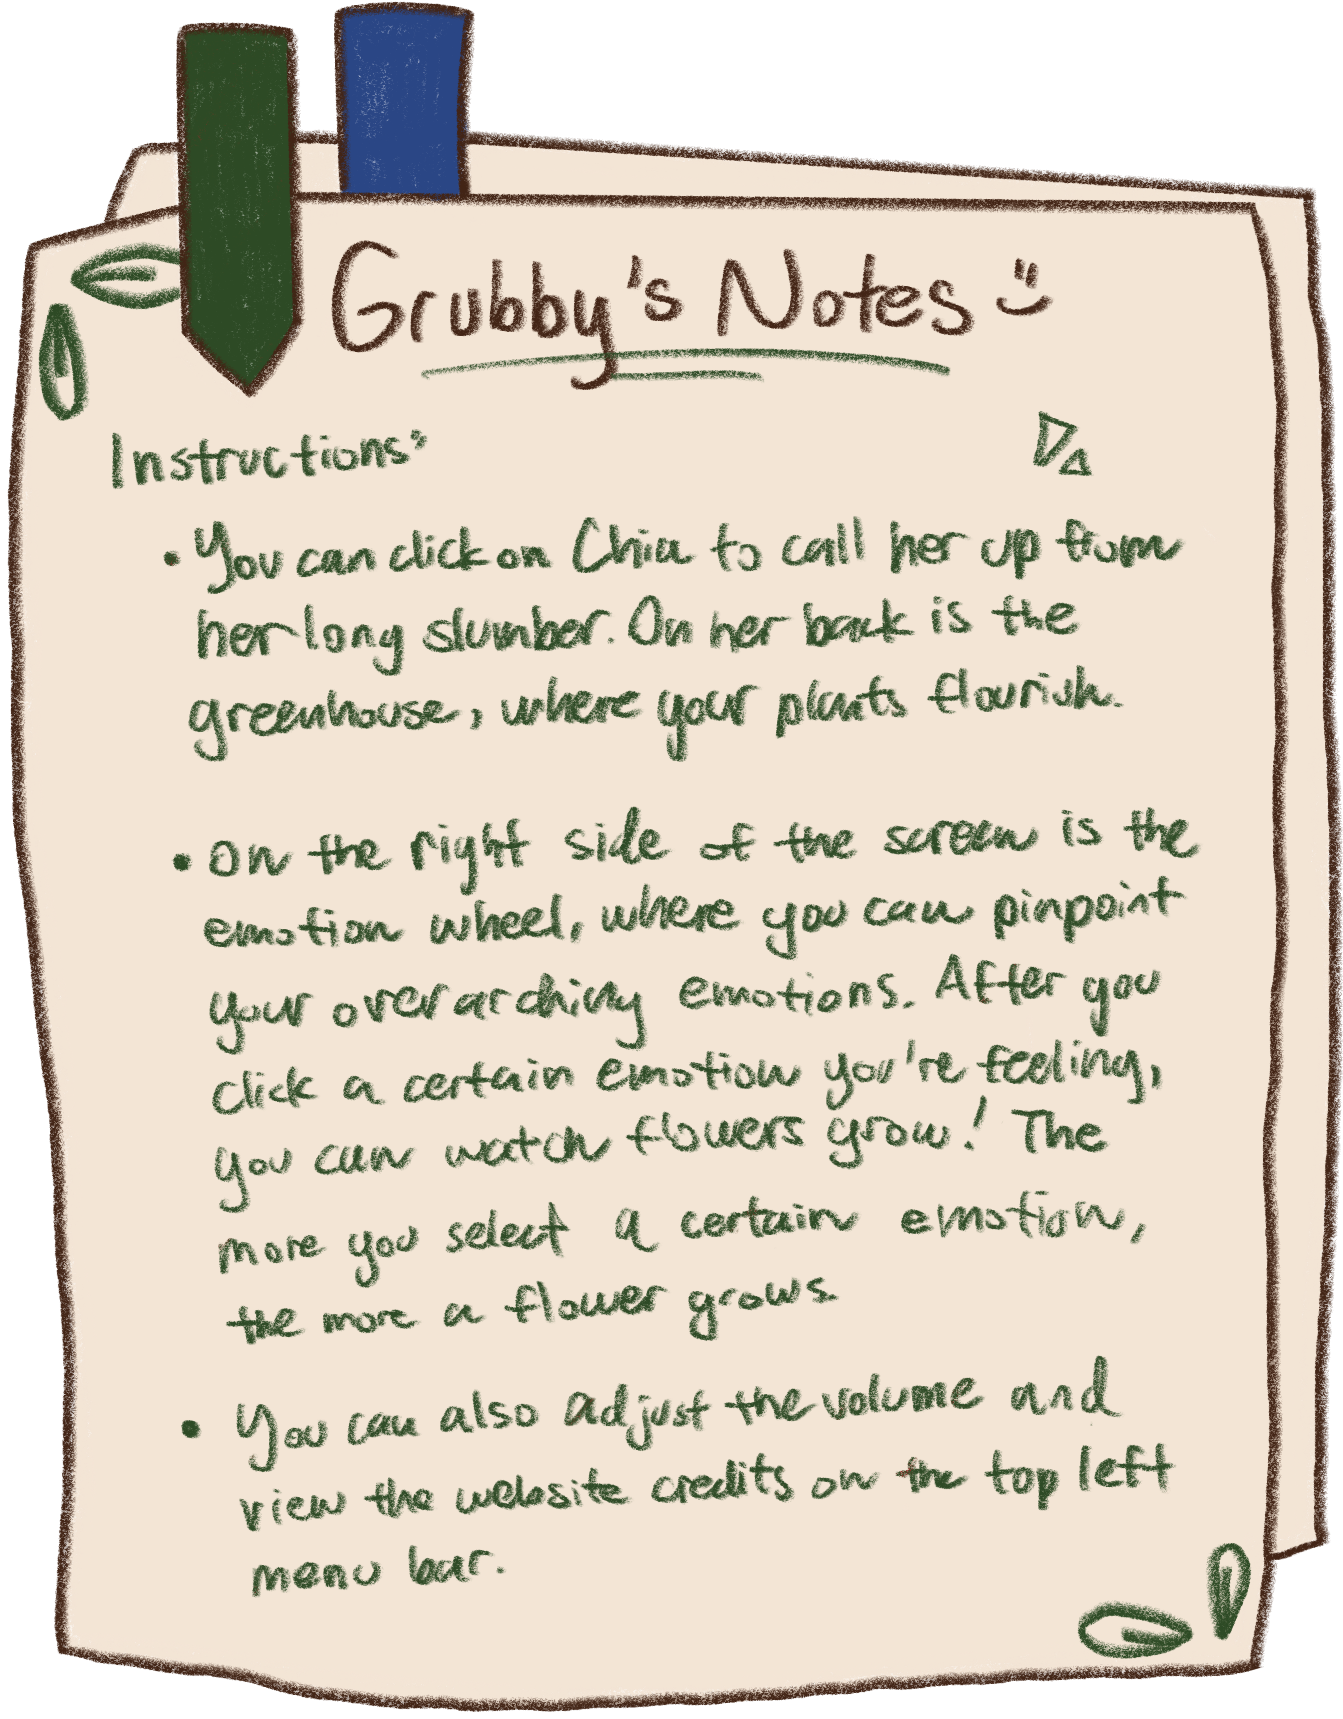 Grubby's Notes
Instructions:
• You can click on Chia to call her up from
her long slumber. On her back is the
greenhouse, where your plants flourish.
• On the right side of the screen is the
emotion wheel, where you can pinpoint
your overarching emotions. After you
click a certain emotion you're feeling,
you can watch flowers grow! The
more you select a certain emotion,
the more a flower grows.
• You can also adjust the volume and
view the website credits on the top left
menu bar.